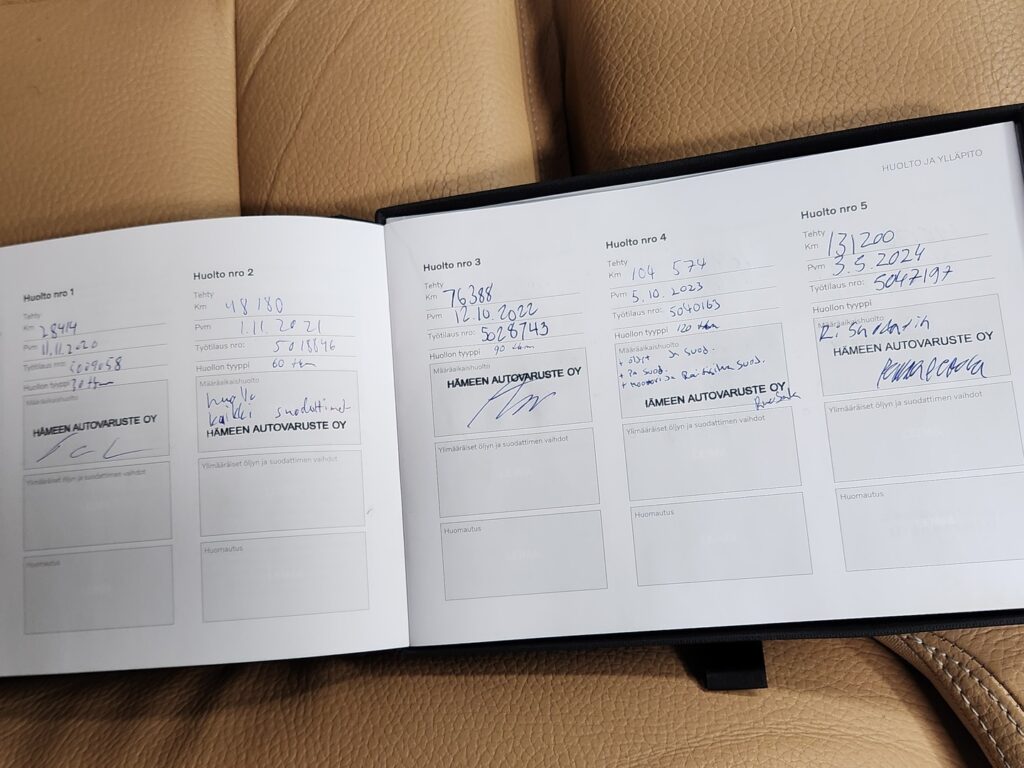 HUOLTO JA YLLÄPITO
Huolto nro 1
Tehty
Km 28414
Pvm 11.11.2020
Työtilaus nro:
Huollon tyyppi 30 tkm
Määräaikaishuolto
HÄMEEN AUTOVARUSTE OY
Ylimääräiset öljyn ja suodattimen vaihdot
Huomautus
Huolto nro 2
Tehty
Km 48180
Pvm 1.11.2021
Työtilaus nro: 5018846
Huollon tyyppi 60 tkm
Määräaikaishuolto
kaikki suodattimet
HÄMEEN AUTOVARUSTE OY
Ylimääräiset öljyn ja suodattimen vaihdot
Huomautus
Huolto nro 3
Tehty
Km 76388
Pvm 12.10.2022
Työtilaus nro: 5028743
Huollon tyyppi 90 tkm
Määräaikaishuolto
HÄMEEN AUTOVARUSTE OY
Ylimääräiset öljyn ja suodattimen vaihdot
Huomautus
Huolto nro 4
Tehty
Km 104 574
Pvm 5.10.2023
Työtilaus nro: 5040163
Huollon tyyppi 120 tkm
Määräaikaishuolto
+ öljyt ja suod.
+ Pa suod.
+ moottori ja Raitisilma suod.
HÄMEEN AUTOVARUSTE OY
Ylimääräiset öljyn ja suodattimen vaihdot
Huomautus
Huolto nro 5
Tehty
Km 131200
Pvm 3.5.2024
Työtilaus nro: 5047197
Huollon tyyppi
Määräaikaishuolto
HÄMEEN AUTOVARUSTE OY
Ylimääräiset öljyn ja suodattimen vaihdot
Huomautus